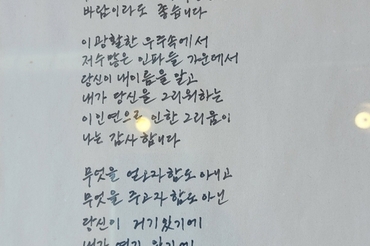 바람이라도 좋습니다
이 광활한 우주속에서
저수많은 인파들 가운데서
당신이 내이름을 알고
내가 당신을 그리워하는
이 인연으로 인한 그리움이
나는 감사합니다
무엇을 얻고자함도 아니고
무엇을 주고자함도 아닌
당신이 거기있기에
내가 여기 있기에